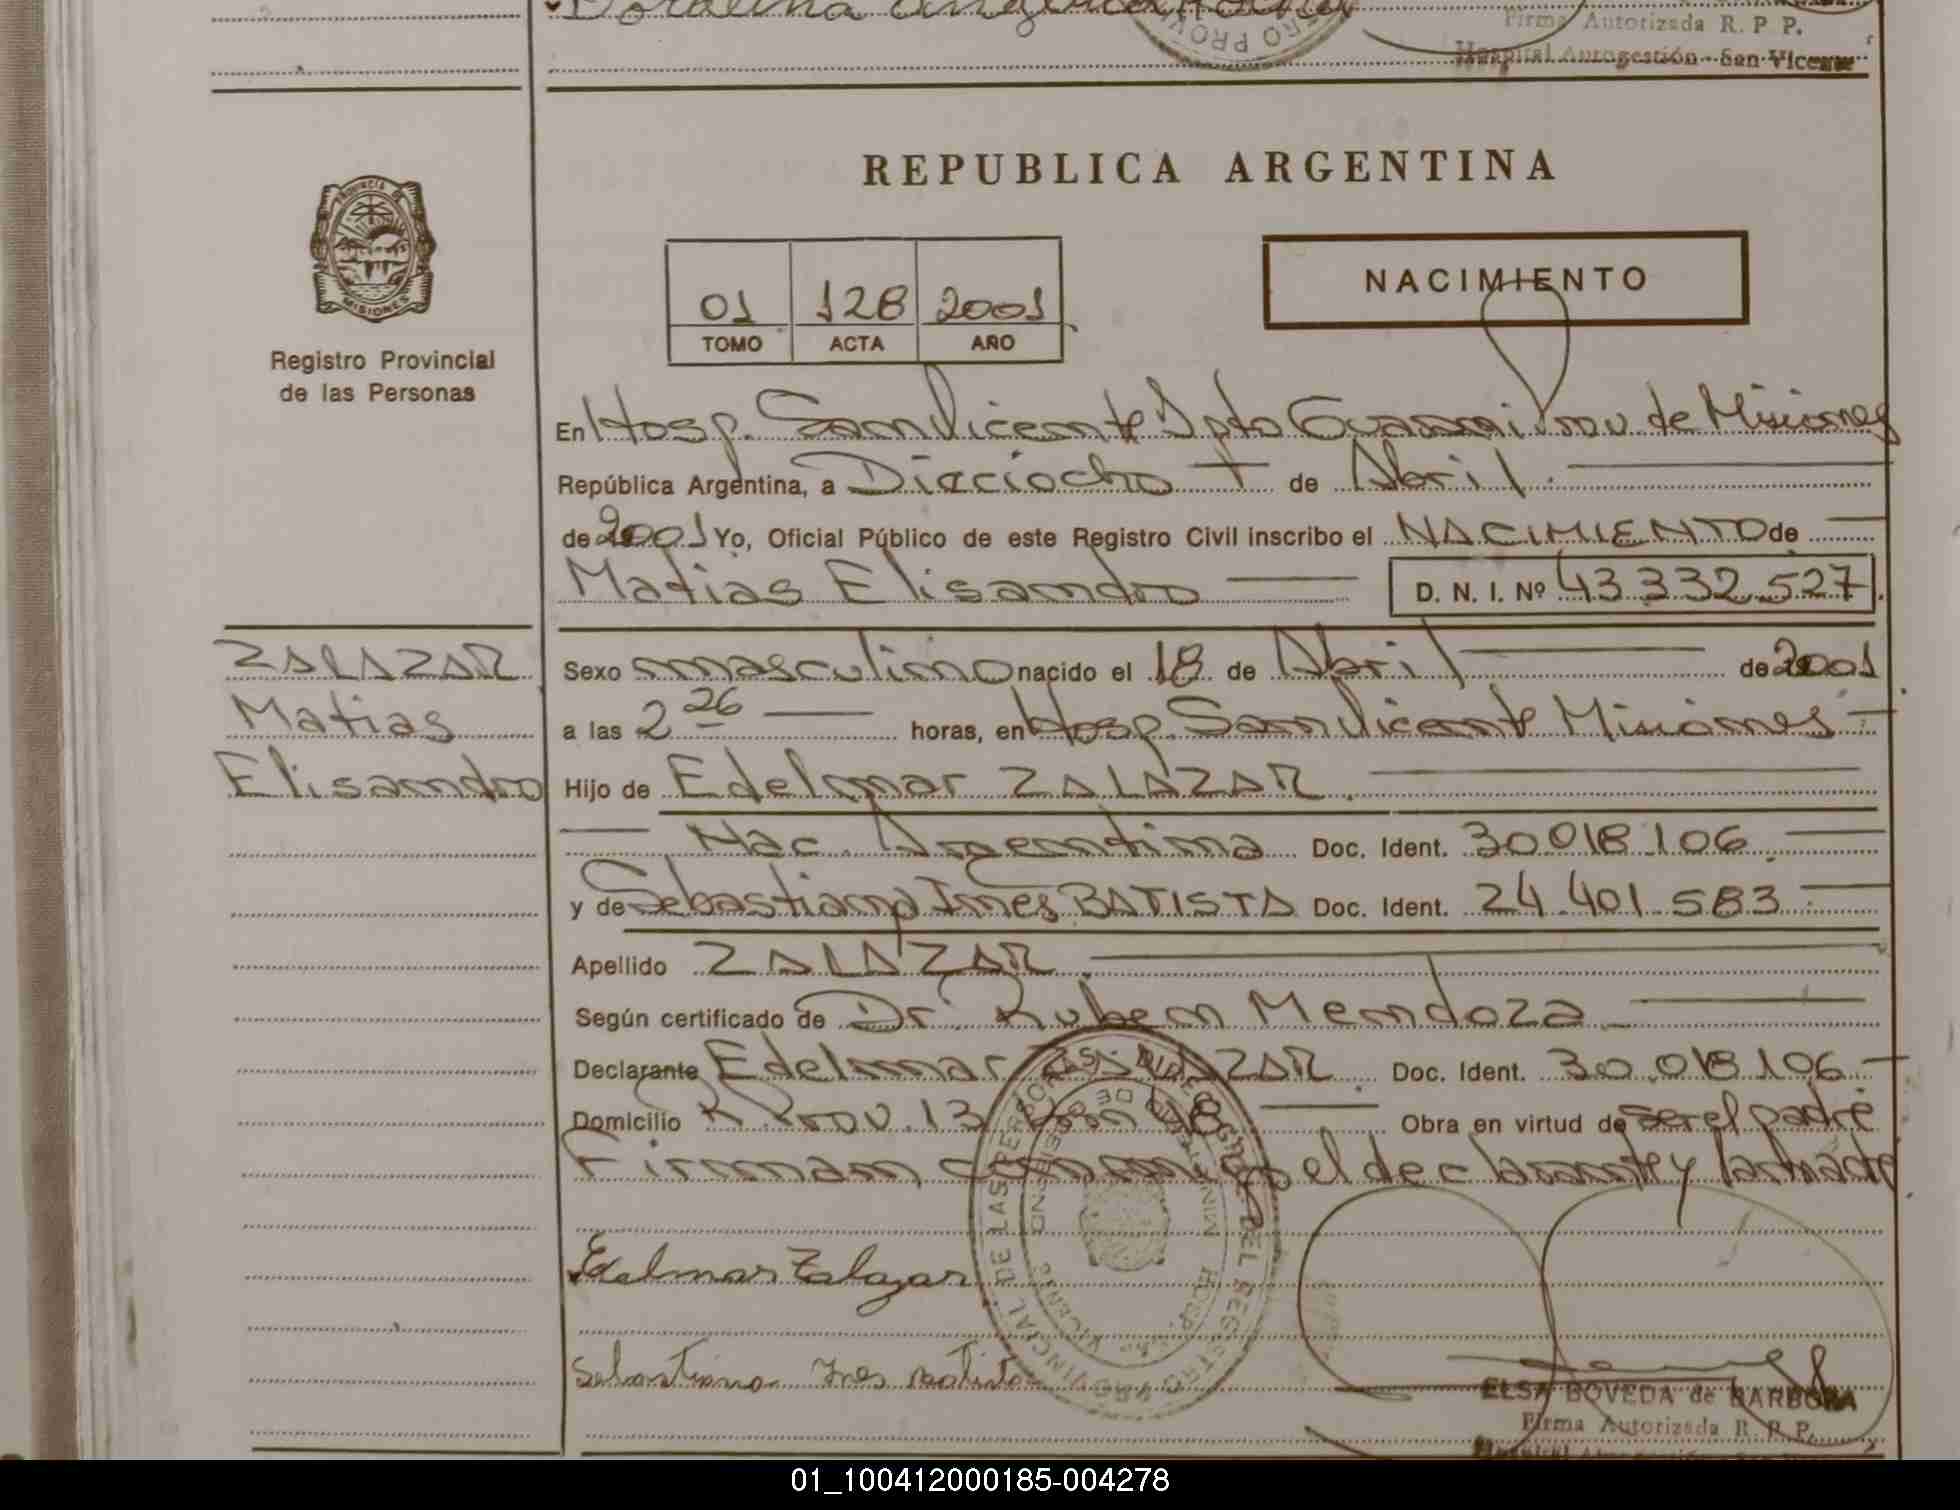 Doralina
Firma Autorizada R. P. P.
Hospital Autogestión - San Vicente
PROVINCIA DE
MISIONES
Registro Provincial
de las Personas
REPUBLICA ARGENTINA
01 128 2001
TOMO ACTA AÑO
NACIMIENTO
En Hosp. San Vicente Dpto Guarani Prov. de Misiones
República Argentina, a Dieciocho de Abril
de 2001 Yo, Oficial Público de este Registro Civil inscribo el NACIMIENTO de
Matias Elisandro D. N. I. Nº 43.332.527
ZALAZAR
Matias
Elisandro
Sexo masculino nacido el 18 de Abril de 2001
a las 2 26 horas, en Hosp. San Vicente Misiones
Hijo de Edelmar ZALAZAR
Nac. Argentina Doc. Ident. 30.018.106
y de Sebastiana Ines BATISTA Doc. Ident. 24.401.583
Apellido ZALAZAR
Según certificado de Dr. Ruben Mendoza
Declarante Edelmar ZALAZAR Doc. Ident. 30.018.106
Domicilio R. Prov. 13 Km 18 Obra en virtud de ser el padre
Firman conmigo el declarante y la madre
Edelmar Zalazar
Sebastiana Ines Batista
PROVINCIAL DE LAS PERSONAS
DEL REGISTRO
ELSA BOVEDA de BARBOZA
Firma Autorizada R. P. P.
01_100412000185-004278